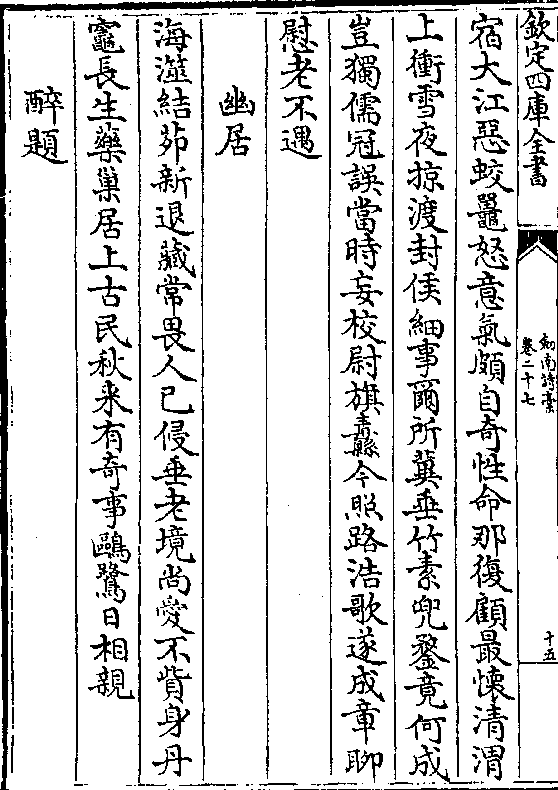 欽定四庫全書
劍南詩藁
卷二十七
十五
宿大江惡蛟鼉怒意氣頗自奇性命那復顧最懷清渭
上衝雪夜掠渡封侯細事爾所冀垂竹素兜鍪竟何成
豈獨儒冠誤當時妄校尉旗纛今照路浩歌遂成章聊
慰老不遇
幽居
海澨結茆新退藏常畏人已侵垂老境尚愛不貲身丹
竈長生藥巢居上古民秋来有奇事鷗鷺日相親
醉題